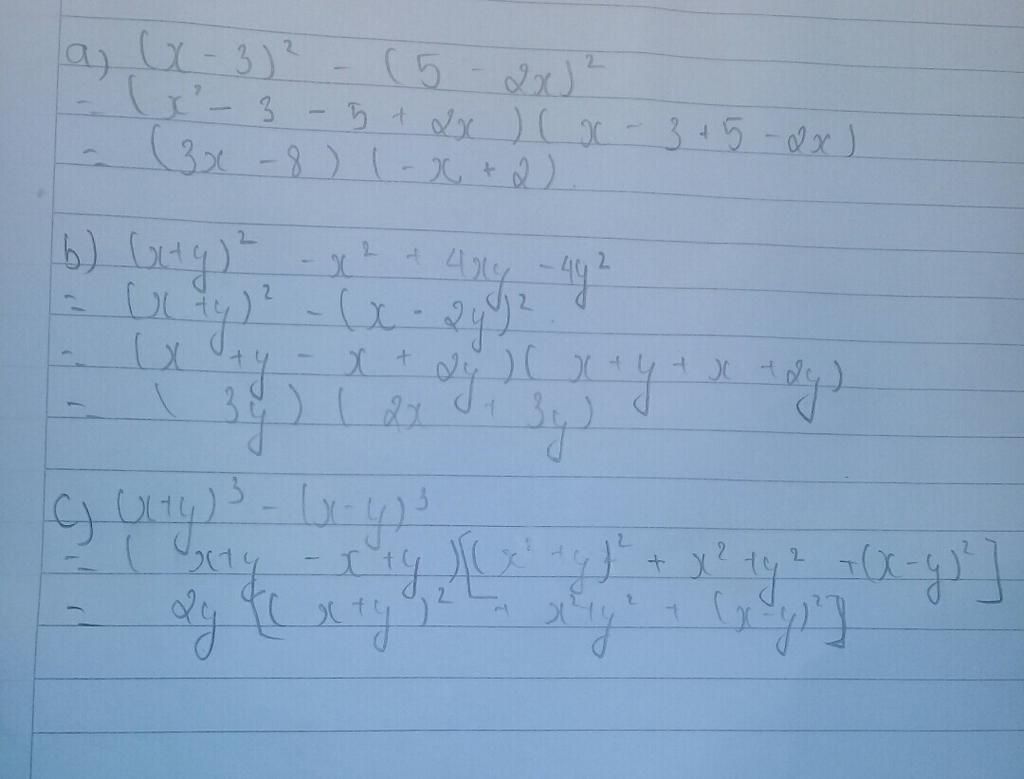 a) (x - 3)² - (5 - 2x)²
= (x - 3 - 5 + 2x)(x - 3 + 5 - 2x)
= (3x - 8)(-x + 2).
b) (x+y)² - x² + 4xy - 4y²
= (x+y)² - (x - 2y)².
= (x + y - x + 2y)(x + y + x + 2y)
= (3y)(2x + 3y)
c) (x+y)³ - (x-y)³
= (x+y - x+y)[(x+y)² + x²+y² + (x-y)²]
= 2y[(x+y)² + x²+y² + (x-y)²]